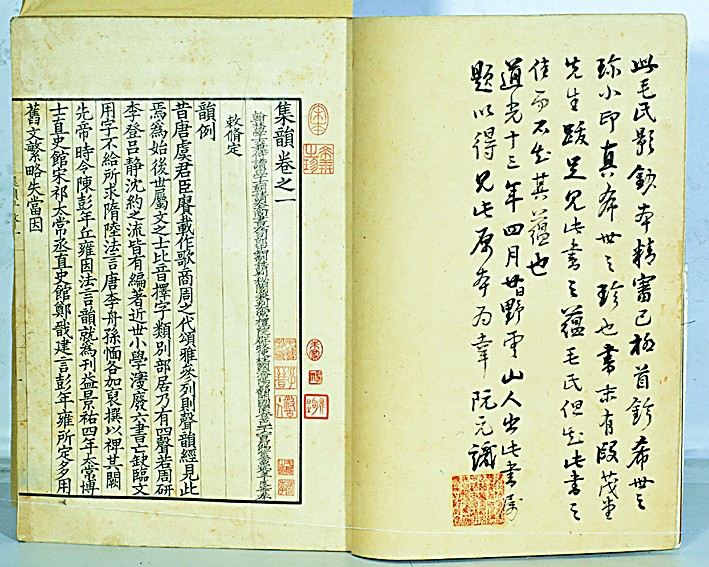 此毛氏影鈔本精審已極首鈐希世之
珍小印真希世之珍也書末有段茂堂
先生跋足見此書之蘊毛氏但知此書之
佳而不知其蘊也
道光十三年四月廿日野雲山人出此書屬
題以得見此原本為幸 阮元識
宋本
希世之珍
集韻卷之一
翰林學士兼侍讀學士朝請大夫尚書左司郎中知制誥
敕脩定
韻例
昔唐虞君臣賡載作歌商周之代頌雅參列則聲韻經見此
焉為始後世屬文之士比音擇字類別部居乃有四聲若周研
李登呂靜沈約之流皆有編著近世小學寖廢六書亡缺臨文
用字不給所求隋陸法言唐李舟孫愐各加裒撰以裨其闕
先帝時令陳彭年丘雍因法言韻就為刊益景祐四年太常博
士直史館宋祁太常丞直史館鄭戩建言彭年雍所定多用
舊文繁略失當因